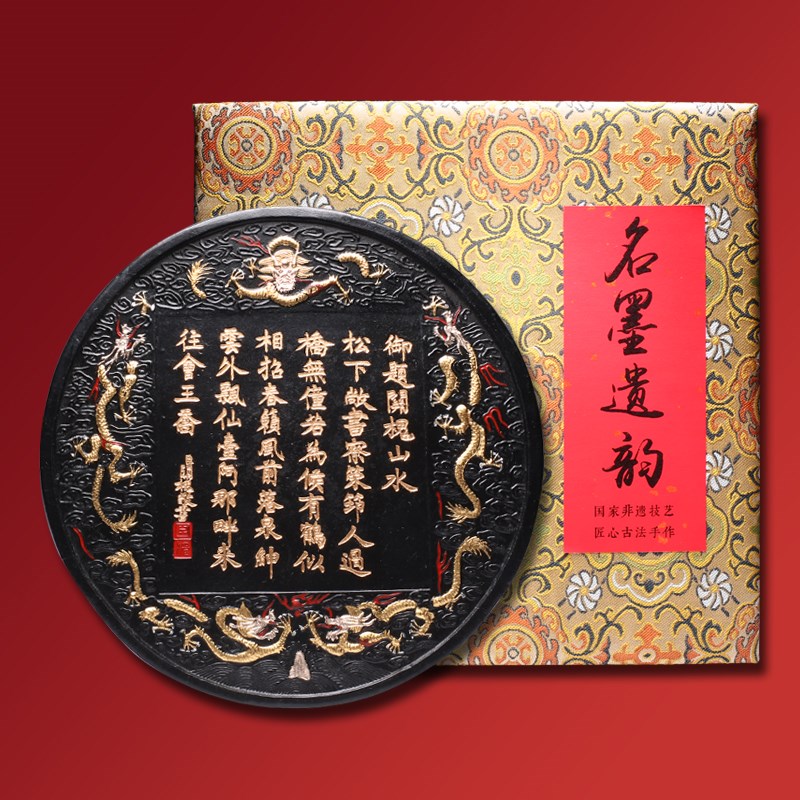 御題關槐山水
松下敞書齋策筇人過
橋無僮若為候有鶴似
相招春籟風前落泉紳
雲外飄仙臺阿那畔來
往會王喬
名墨遺韵
国家非遗技艺
匠心古法手作